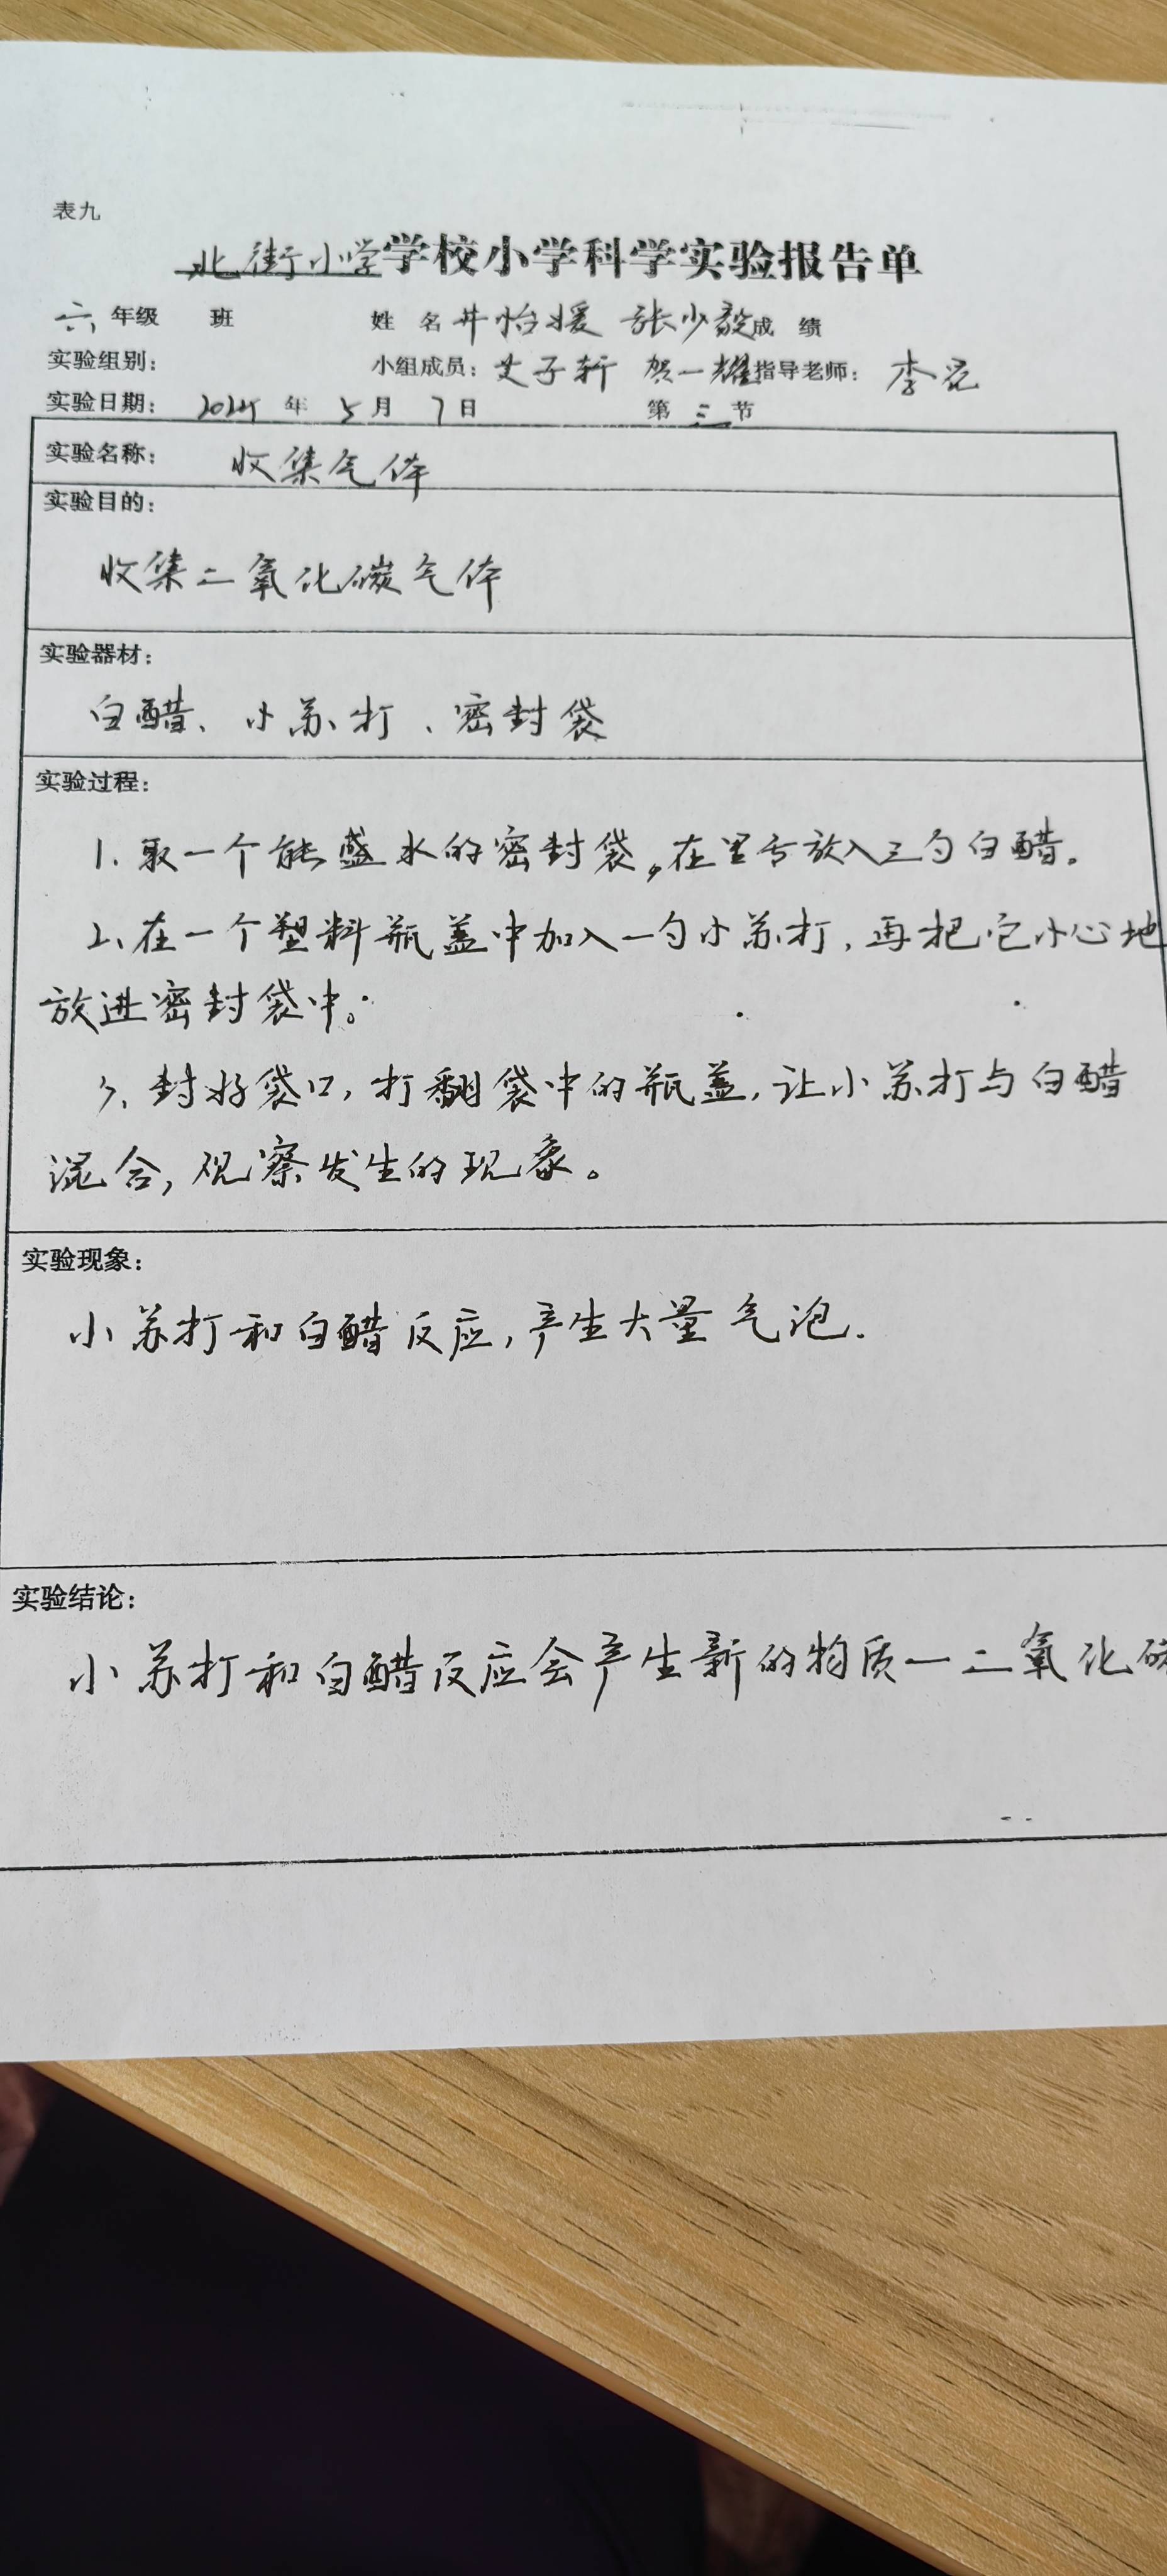 表九
北街小学学校小学科学实验报告单
六年级 班 姓 名 井怡媛 张少毅 成 绩
实验组别： 小组成员：艾子轩 贺一耀 指导老师：李
实验日期： 年 5 月 7 日 第 三 节
实验名称： 收集气体
实验目的：
收集二氧化碳气体
实验器材：
白醋、小苏打、密封袋
实验过程：
1. 取一个能盛水的密封袋，在里面放入三勺白醋。
2、在一个塑料瓶盖中加入一勺小苏打，再把它小心地
放进密封袋中。
3、封好袋口，打翻袋中的瓶盖，让小苏打与白醋
混合，观察发生的现象。
实验现象：
小苏打和白醋反应，产生大量气泡.
实验结论：
小苏打和白醋反应会产生新的物质一二氧化碳